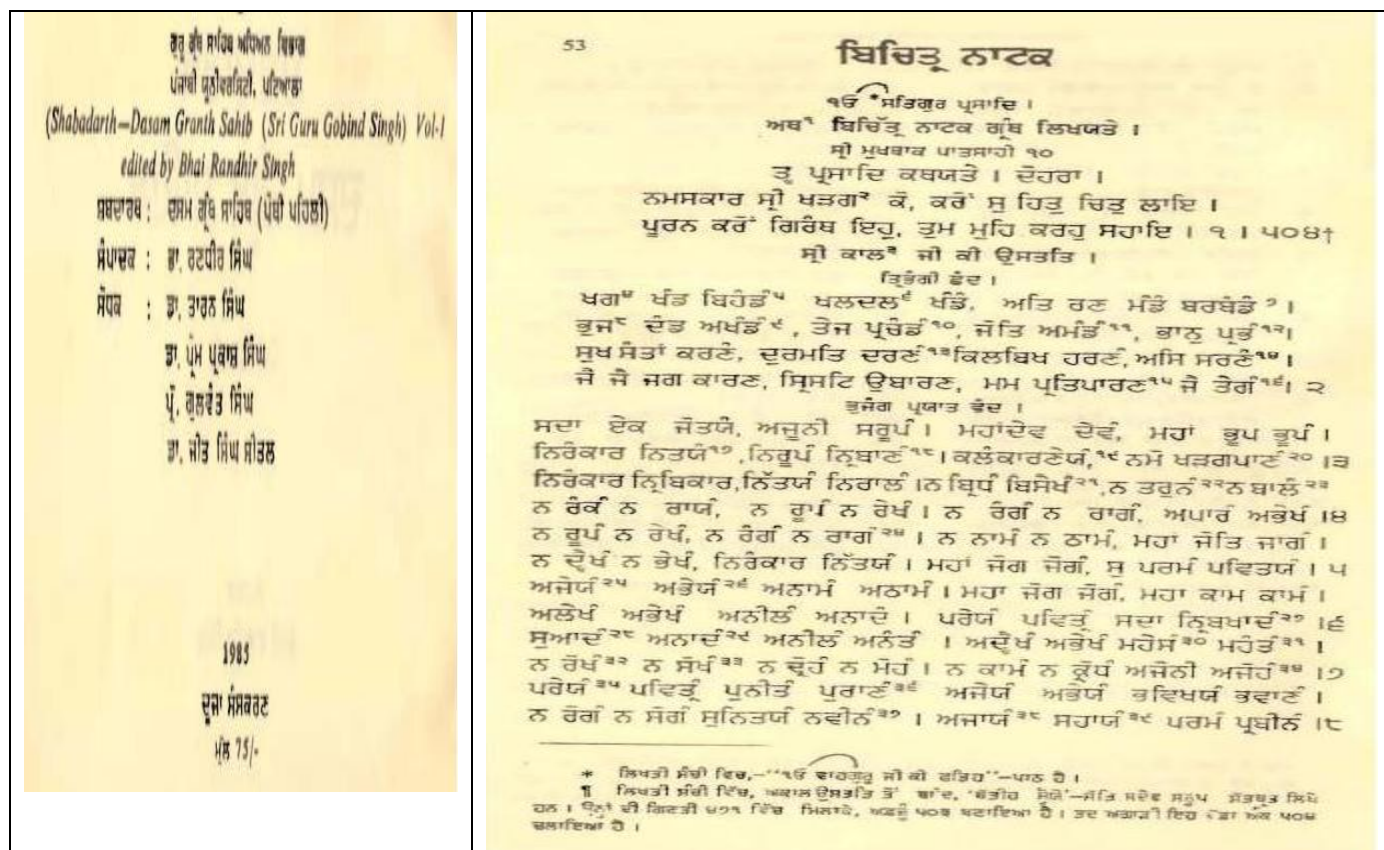 ਗੁਰੂ ਗ੍ਰੰਥ ਸਾਹਿਬ ਅਧਿਐਨ ਵਿਭਾਗ
ਪੰਜਾਬੀ ਯੂਨੀਵਰਸਿਟੀ, ਪਟਿਆਲਾ
(Shabadarth—Dasam Granth Sahib (Sri Guru Gobind Singh) Vol-I
edited by Bhai Randhir Singh
ਸ਼ਬਦਾਰਥ : ਦਸਮ ਗ੍ਰੰਥ ਸਾਹਿਬ (ਪੋਥੀ ਪਹਿਲੀ)
ਸੰਪਾਦਕ : ਭਾ. ਰਣਧੀਰ ਸਿੰਘ
ਸੋਧਕ : ਡਾ. ਤਾਰਨ ਸਿੰਘ
ਡਾ. ਪ੍ਰੇਮ ਪ੍ਰਕਾਸ਼ ਸਿੰਘ
ਪ੍ਰੋ. ਗੁਲਵੰਤ ਸਿੰਘ
ਡਾ. ਜੀਤ ਸਿੰਘ ਸੀਤਲ
1985
ਦੂਜਾ ਸੰਸਕਰਣ
ਮੁੱਲ 75/-
53
ਬਿਚਿਤ੍ਰ ਨਾਟਕ
ੴ *ਸਤਿਗੁਰ ਪ੍ਰਸਾਦਿ ।
ਅਥ੧ ਬਿਚਿੱਤ੍ਰ ਨਾਟਕ ਗ੍ਰੰਥ ਲਿਖਯਤੇ ।
ਸ੍ਰੀ ਮੁਖਬਾਕ ਪਾਤਸਾਹੀ ੧੦
ਤ੍ਵ ਪ੍ਰਸਾਦਿ ਕਥਯਤੇ । ਦੋਹਰਾ ।
ਨਮਸਕਾਰ ਸ੍ਰੀ ਖੜਗ੨ ਕੋ, ਕਰੌਂ ਸੁ ਹਿਤੁ ਚਿਤੁ ਲਾਇ ।
ਪੂਰਨ ਕਰੌਂ ਗਿਰੰਥ ਇਹੁ, ਤੁਮ ਮੁਹਿ ਕਰਹੁ ਸਹਾਇ । ੧ । ੫੦੪†
ਸ੍ਰੀ ਕਾਲ੩ ਜੀ ਕੀ ਉਸਤਤਿ ।
ਤ੍ਰਿਭੰਗੀ ਛੰਦ ।
ਖਗ੪ ਖੰਡ ਬਿਹੰਡੰ੫ ਖਲਦਲ੬ ਖੰਡੰ, ਅਤਿ ਰਣ ਮੰਡੰ ਬਰਬੰਡੰ੭ ।
ਭੁਜ੮ ਦੰਡ ਅਖੰਡੰ੯, ਤੇਜ ਪ੍ਰਚੰਡੰ੧੦, ਜੋਤਿ ਅਮੰਡੰ੧੧, ਭਾਨੁ ਪ੍ਰਭੰ੧੨।
ਸੁਖ ਸੰਤਾਂ ਕਰਣੰ, ਦੁਰਮਤਿ ਦਰਣੰ੧੩ਕਿਲਬਿਖ ਹਰਣੰ, ਅਸਿ ਸਰਣੰ੧੪।
ਜੈ ਜੈ ਜਗ ਕਾਰਣ, ਸ੍ਰਿਸਟਿ ਉਬਾਰਣ, ਮਮ ਪ੍ਰਤਿਪਾਰਣ੧੫ ਜੈ ਤੇਗੰ੧੬। ੨
ਭੁਜੰਗ ਪ੍ਰਯਾਤ ਛੰਦ ।
ਸਦਾ ਏਕ ਜੋਤਯੰ, ਅਜੂਨੀ ਸਰੂਪੰ । ਮਹਾਂਦੇਵ ਦੇਵੰ, ਮਹਾਂ ਭੂਪ ਭੂਪੰ ।
ਨਿਰੰਕਾਰ ਨਿਤਯੰ੧੭, ਨਿਰੂਪੰ ਨ੍ਰਿਬਾਣੰ੧੮। ਕਲੰਕਾਰਣੇਯੰ,੧੯ ਨਮੋ ਖੜਗਪਾਣੰ੨੦ ।੩
ਨਿਰੰਕਾਰ ਨ੍ਰਿਬਿਕਾਰ,ਨਿੱਤਯੰ ਨਿਰਾਲੰ ।ਨ ਬ੍ਰਿਧੰ ਬਿਸੇਖੰ੨੧,ਨ ਤਰੁਨੰ੨੨ਨ ਬਾਲੰ੨੩
ਨ ਰੰਕੰ ਨ ਰਾਯੰ, ਨ ਰੂਪੰ ਨ ਰੇਖੰ । ਨ ਰੰਗੰ ਨ ਰਾਗੰ, ਅਪਾਰੰ ਅਭੇਖੰ ।੪
ਨ ਰੂਪੰ ਨ ਰੇਖੰ, ਨ ਰੰਗੰ ਨ ਰਾਗੰ੨੪ । ਨ ਨਾਮੰ ਨ ਠਾਮੰ, ਮਹਾ ਜੋਤਿ ਜਾਗੰ ।
ਨ ਦ੍ਵੈਖੰ ਨ ਭੇਖੰ, ਨਿਰੰਕਾਰ ਨਿੱਤਯੰ । ਮਹਾਂ ਜੋਗ ਜੋਗੰ, ਸੁ ਪਰਮੰ ਪਵਿਤਯੰ । ੫
ਅਜੇਯੰ੨੫ ਅਭੇਯੰ੨੬ ਅਨਾਮੰ ਅਠਾਮੰ । ਮਹਾ ਜੋਗ ਜੋਗੰ, ਮਹਾ ਕਾਮ ਕਾਮੰ ।
ਅਲੇਖੰ ਅਭੇਖੰ ਅਨੀਲੰ ਅਨਾਦੰ । ਪਰੇਯੰ ਪਵਿਤ੍ਰੰ ਸਦਾ ਨ੍ਰਿਬਖਾਦੰ੨੭ ।੬
ਸੁਆਦੰ੨੮ ਅਨਾਦੰ੨੯ ਅਨੀਲੰ ਅਨੰਤੰ । ਅਦ੍ਵੈਖੰ ਅਭੇਖੰ ਮਹੇਸੰ੩੦ ਮਹੰਤੰ੩੧ ।
ਨ ਰੋਖੰ੩੨ ਨ ਸੋਖੰ੩੩ ਨ ਦ੍ਰੋਹੰ ਨ ਮੋਹੰ । ਨ ਕਾਮੰ ਨ ਕ੍ਰੋਧੰ ਅਜੋਨੀ ਅਜੋਹੰ੩੪ ।੭
ਪਰੇਯੰ੩੫ ਪਵਿਤ੍ਰੰ ਪੁਨੀਤੰ ਪੁਰਾਣੰ੩੬ ਅਜੇਯੰ ਅਭੇਯੰ ਭਵਿਖਯੰ ਭਵਾਣੰ ।
ਨ ਰੋਗੰ ਨ ਸੋਗੰ ਸੁਨਿਤਯੰ ਨਵੀਨੰ੩੭ । ਅਜਾਯੰ੩੮ ਸਹਾਯੰ੩੯ ਪਰਮੰ ਪ੍ਰਬੀਨੰ ।੮
* ਲਿਖਤੀ ਸੰਚੀ ਵਿਚ,—"ੴ ਵਾਹਗੁਰੂ ਜੀ ਕੀ ਫਤਿਹ"—ਪਾਠ ਹੈ ।
¶ ਲਿਖਤੀ ਸੰਚੀ ਵਿੱਚ, ਅਕਾਲ ਉਸਤਤਿ ਤੋਂ ਬਾਦ, ਲਿਖੇ
ਹਨ । ਉਨ੍ਹਾਂ ਦੀ ਗਿਣਤੀ ੪੭੧ ਵਿੱਚ ਮਿਲਾਕੇ, ੫੦੩ ਬਣਾਇਆ ਹੈ । ਤਦ ਅਗਾੜੀ ਇਹ ਅੰਕ ੫੦੪
ਚਲਾਇਆ ਹੈ ।